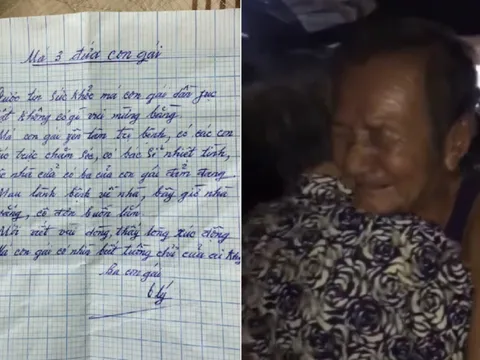 Má 3 đứa con gái
được tin sức khỏe má con gái dần phục
không có gì vui mừng bằng
Má con gái yên tâm trị bệnh, có các con
túc trực chăm sóc, có bác sĩ nhiệt tình,
nhà cửa có ba của con gái đảm đang
Mau lành bệnh về nhà, bây giờ nhà
vắng, cô đơn buồn lắm
Mới viết vài dòng, thấy lòng xúc động
Má con gái có nhìn bút tưởng chữ của
Ba con gái
lý